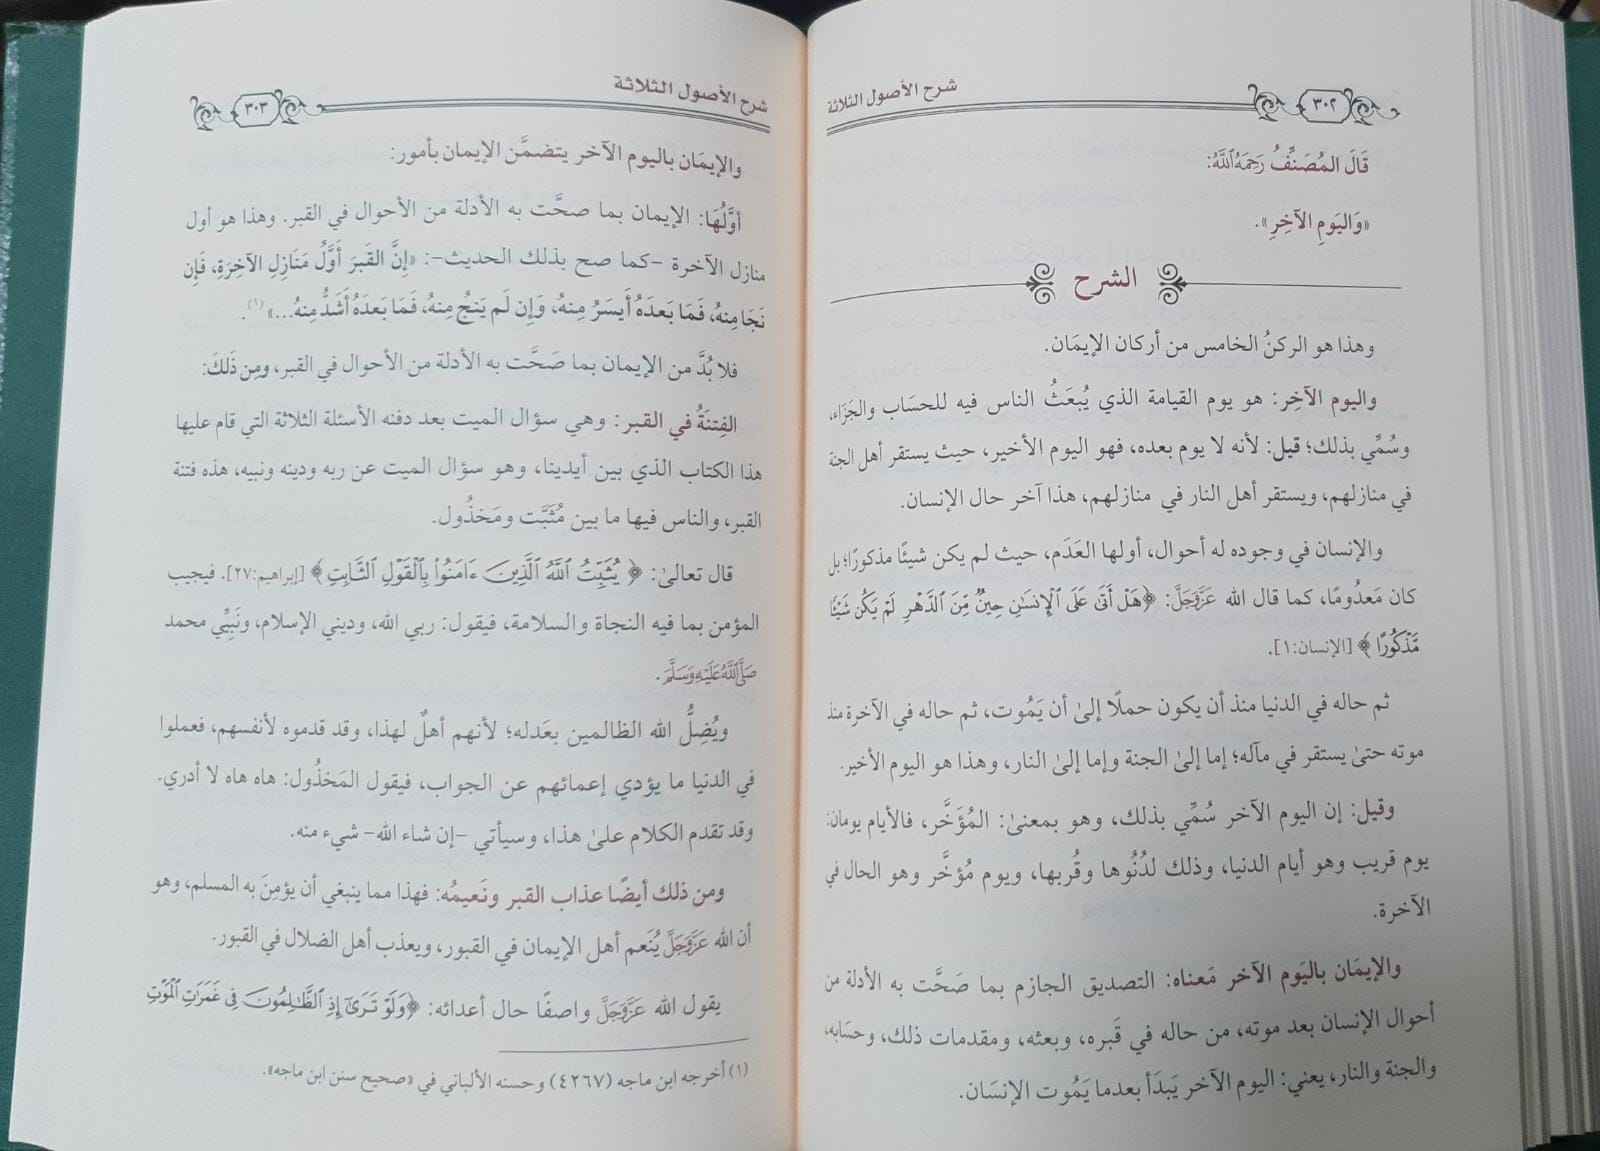 شرح الأصول الثلاثة
٣٠٢
قَالَ المُصَنِّفُ رَحِمَهُ اللَّهُ:
«وَاليَومِ الآخِرِ».
الشرح
وهذا هو الركنُ الخامس من أركان الإيمَان.
واليوم الآخِر: هو يوم القيامة الذي يُبعَثُ الناس فيه للحسَاب والجَزَاء،
وسُمِّي بذلك؛ قيل: لأنه لا يوم بعده، فهو اليوم الأخير، حيث يستقر أهل الجنة
في منازلهم، ويستقر أهل النار في منازلهم، هذا آخر حال الإنسان.
والإنسان في وجوده له أحوال، أولها العَدَم، حيث لم يكن شيئًا مذكورًا؛ بل
كان مَعدُومًا، كما قال الله عَزَّوَجَلَّ: ﴿هَلْ أَتَىٰ عَلَى ٱلْإِنسَٰنِ حِينٌ مِّنَ ٱلدَّهْرِ لَمْ يَكُن شَيْـًٔا
مَّذْكُورًا﴾ [الإنسان:١].
ثم حاله في الدنيا منذ أن يكون حملًا إلىٰ أن يَمُوت، ثم حاله في الآخرة منذ
موته حتىٰ يستقر في مآله؛ إما إلىٰ الجنة وإما إلىٰ النار، وهذا هو اليوم الأخير.
وقيل: إن اليوم الآخر سُمِّي بذلك، وهو بمعنىٰ: المُؤَخَّر، فالأيام يومان:
يوم قريب وهو أيام الدنيا، وذلك لدُنُوها وقُربها، ويوم مُؤخَّر وهو الحال في
الآخرة.
والإيمَان باليَوم الآخر مَعناه: التصديق الجازم بما صَحَّت به الأدلة من
أحوال الإنسان بعد موته، من حاله في قَبره، وبعثه، ومقدمات ذلك، وحسَابه،
والجنة والنار، يعني: اليوم الآخر يَبدَأ بعدما يَمُوت الإنسَان.
شرح الأصول الثلاثة
٣٠٣
والإيمَان باليوم الآخر يتضمَّن الإيمان بأمور:
أوَّلُهَا: الإيمان بما صحَّت به الأدلة من الأحوال في القبر. وهذا هو أول
منازل الآخرة -كما صح بذلك الحديث-: «إِنَّ القَبرَ أَوَّلُ مَنَازِلِ الآخِرَةِ، فَإِن
نَجَا مِنهُ، فَمَا بَعدَهُ أَيسَرُ مِنهُ، وَإِن لَم يَنجُ مِنهُ، فَمَا بَعدَهُ أَشَدُّ مِنهُ...»(١).
فلا بُدَّ من الإيمان بما صَحَّت به الأدلة من الأحوال في القبر، ومِن ذَلكَ:
الفِتنَةُ في القبر: وهي سؤال الميت بعد دفنه الأسئلة الثلاثة التي قام عليها
هذا الكتاب الذي بين أيدينا، وهو سؤال الميت عن ربه ودينه ونبيه، هذه فتنة
القبر، والناس فيها ما بين مُثَبَّت ومَخذُول.
قال تعالىٰ: ﴿يُثَبِّتُ ٱللَّهُ ٱلَّذِينَ ءَامَنُوا۟ بِٱلْقَوْلِ ٱلثَّابِتِ﴾ [إبراهيم:٢٧]. فيجيب
المؤمن بما فيه النجاة والسلامة، فيقول: ربي الله، وديني الإسلام، ونَبِيِّي محمد
صَلَّى اللَّهُ عَلَيْهِ وَسَلَّمَ.
ويُضِلُّ الله الظالمين بعَدله؛ لأنهم أهلٌ لهذا، وقد قدموه لأنفسهم، فعملوا
في الدنيا ما يؤدي إعمائهم عن الجواب، فيقول المَخذُول: هاه هاه لا أدري.
وقد تقدم الكلام علىٰ هذا، وسيأتي -إن شاء الله- شيء منه.
ومن ذلك أيضًا عذاب القبر ونَعيمُه: فهذا مما ينبغي أن يؤمِنَ به المسلم، وهو
أن الله عَزَّوَجَلَّ يُنَعم أهل الإيمان في القبور، ويعذب أهل الضلال في القبور.
يقول الله عَزَّوَجَلَّ واصفًا حال أعدائه: ﴿وَلَوْ تَرَىٰٓ إِذِ ٱلظَّٰلِمُونَ فِى غَمَرَٰتِ ٱلْمَوْتِ
(١) أخرجه ابن ماجه (٤٢٦٧) وحسنه الألباني في «صحيح سنن ابن ماجه».